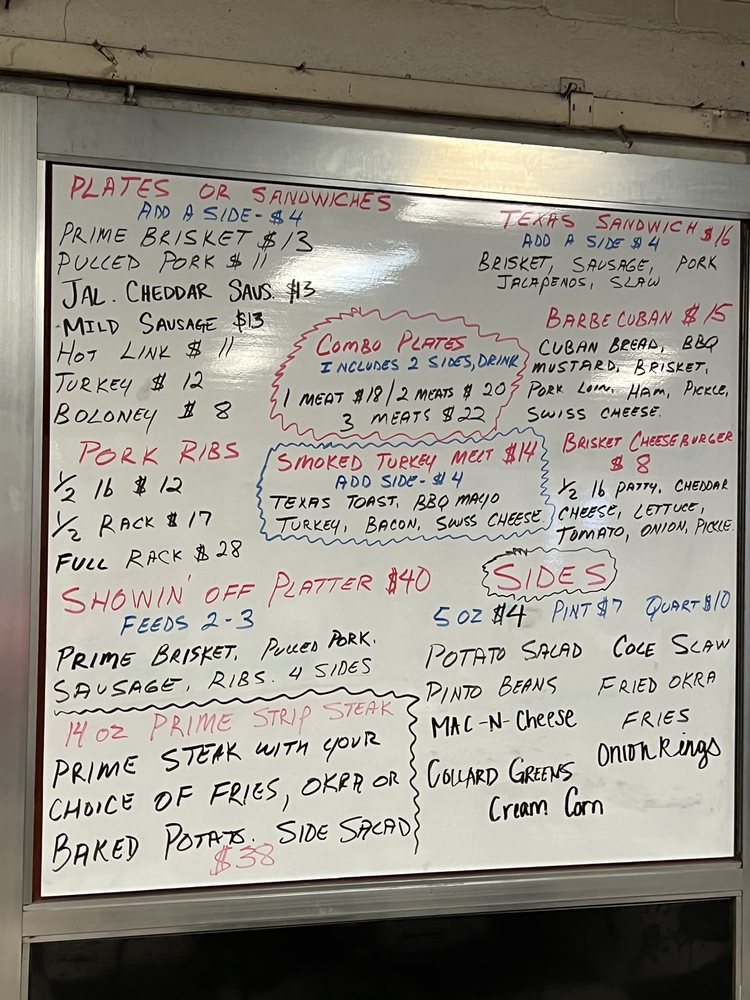 PLATES OR SANDWICHES
ADD A SIDE - $4
PRIME BRISKET $13
PULLED PORK $11
JAL. CHEDDAR SAUS. $13
MILD SAUSAGE $13
HOT LINK $11
TURKEY $12
BOLONEY $8
PORK RIBS
1/2 lb $12
1/2 RACK $17
FULL RACK $28
SHOWIN' OFF PLATTER $40
FEEDS 2-3
PRIME BRISKET, PULLED PORK.
SAUSAGE, RIBS. 4 SIDES
14 OZ PRIME STRIP STEAK
PRIME STEAK WITH YOUR
CHOICE OF FRIES, OKRA OR
BAKED POTATO. SIDE SALAD
$38
COMBO PLATES
INCLUDES 2 SIDES, DRINK
1 MEAT $18/2 MEATS $20
3 MEATS $22
SMOKED TURKEY MELT $14
ADD SIDE - $4
TEXAS TOAST, BBQ MAYO
TURKEY, BACON, SWISS CHEESE
TEXAS SANDWICH $16
ADD A SIDE $4
BRISKET, SAUSAGE, PORK
JALAPENOS, SLAW
BARBECUBAN $15
CUBAN BREAD, BBQ
MUSTARD, BRISKET,
PORK LOIN, HAM, PICKLE,
SWISS CHEESE.
BRISKET CHEESEBURGER
$8
1/2 lb PATTY, CHEDDAR
CHEESE, LETTUCE,
TOMATO, ONION, PICKLE.
SIDES
5 OZ $4 PINT $7 QUART $10
POTATO SALAD COLE SLAW
PINTO BEANS FRIED OKRA
MAC-N-CHEESE FRIES
COLLARD GREENS Onion Rings
Cream Corn